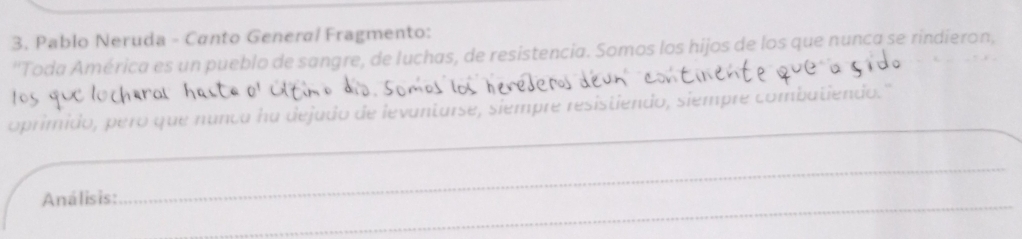 3. Pablo Neruda - Canto General Fragmento:
"Toda América es un pueblo de sangre, de luchas, de resistencia. Somos los hijos de los que nunca se rindieron,
los que locharos hasta ol último dia. Somos los herederos deun continente que a sido
oprimido, pero que nunca ha dejado de levantarse, siempre resistiendo, siempre combatiendo."
Análisis: